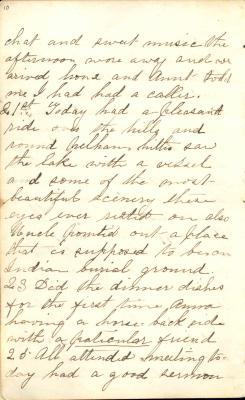 10
chat and sweet music the
afternoon wore away and we
arived home and Aunt told
me I had had a caller.
21st. Today had a pleasant
ride over the hills and
round Pelham hills saw
the lake with a vessel
and some of the most
beautiful scenery these
eyes ever rested on also
Uncle pointed out a place
that is supposed to be an
Indian burial ground.
23 Did the dinner dishes
for the first time Anna
having a horse back ride
with a paticular friend
25. All attended meeting to-
day had a good sermon